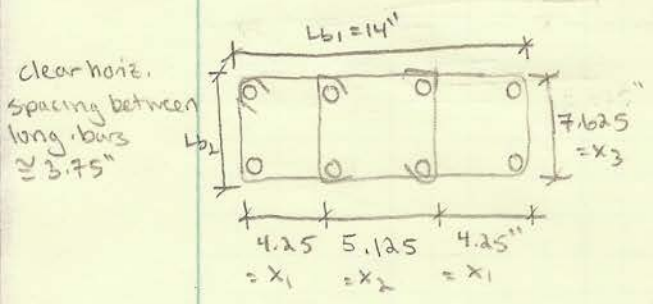 Lb₁ = 14"
clear horiz.
spacing between
long. bars
≅ 3.75"
Lb₂
7.625"
= x₃
4.25 5.125 4.25"
= x₁ = x₂ = x₁